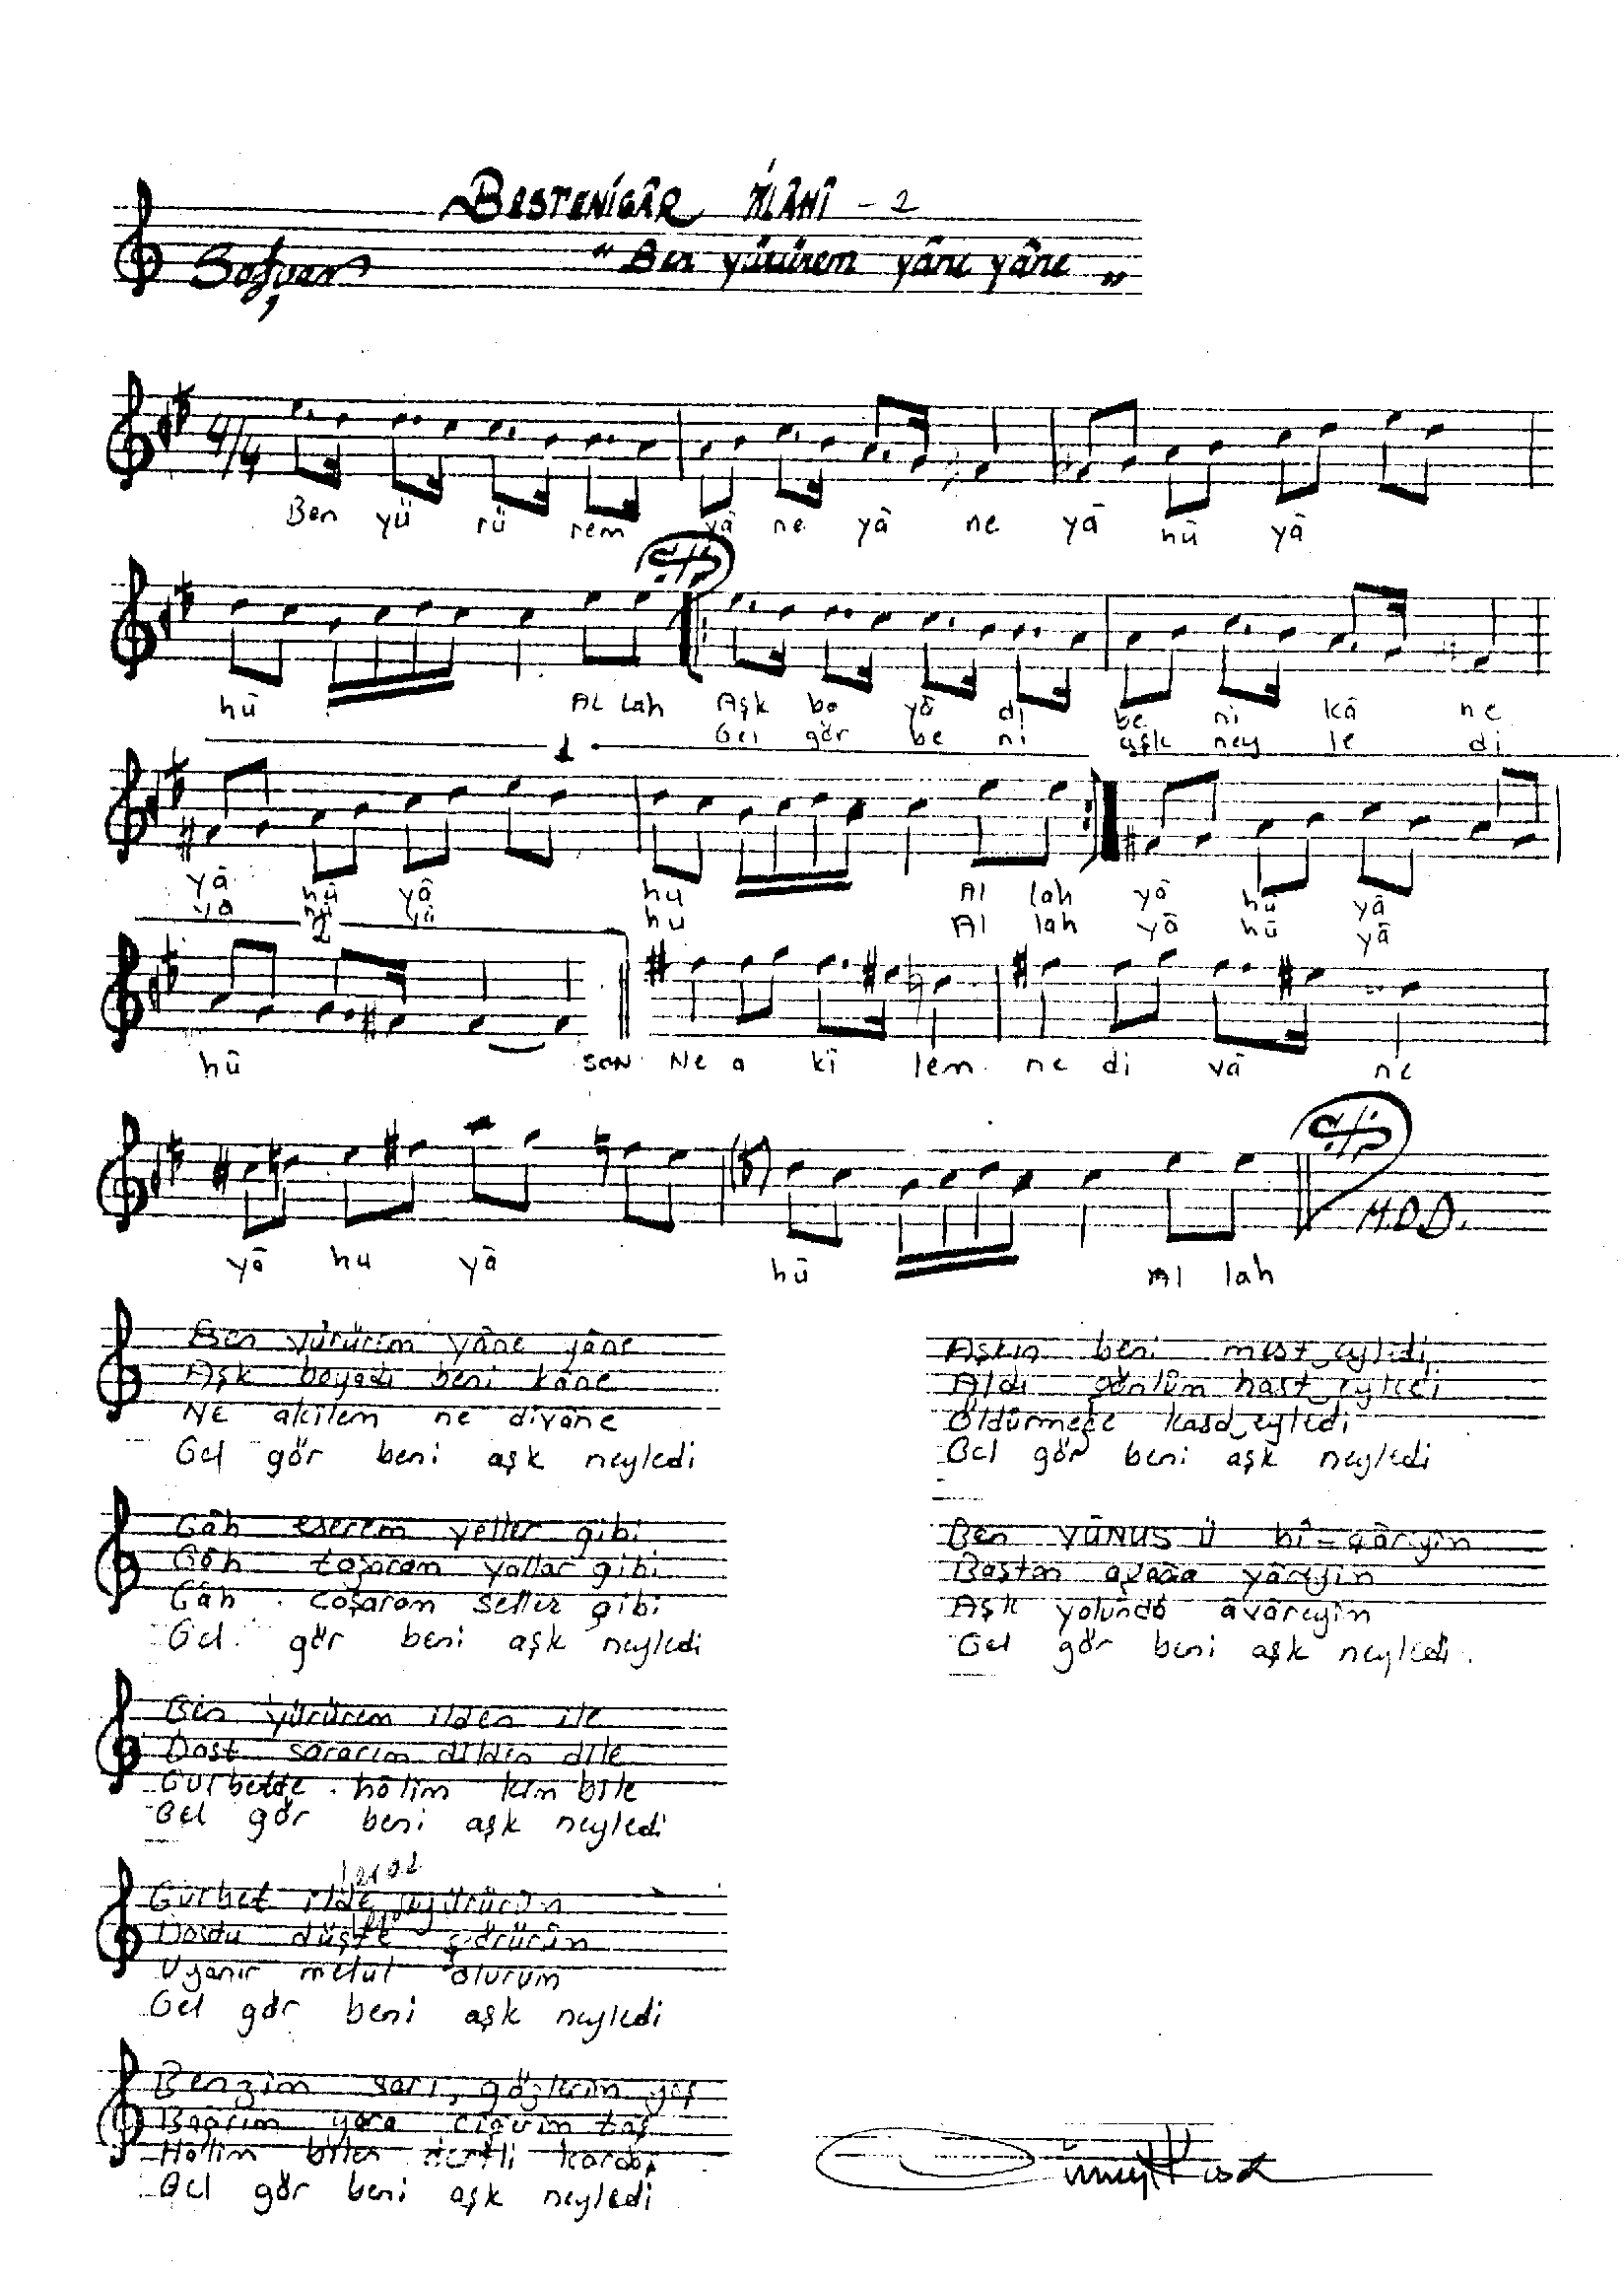 BESTENİGÂR İLÂHİ - 2
Sofyan
"Ben yürürem yâne yâne"
4/4
Ben yü rü rem yâ ne yâ ne yâ hû yâ
hû Al lah Aşk bo ya dı be ni kâ ne
Gel gör be ni aşk ney le di
1
yâ hû yâ hu Al lah yâ hû yâ
ya hû yâ hu Al lah yâ hû yâ
2
hû SON Ne a kî lem ne di vâ ne
yâ hu yâ hû Al lah
M.D.D.
Ben yürürem yâne yâne
Aşk boyadı beni kâne
Ne akilem ne divâne
Gel gör beni aşk neyledi
Gâh eserem yeller gibi
Gâh tozaram yollar gibi
Gâh coşaram seller gibi
Gel gör beni aşk neyledi
Ben yürürem ilden ile
Dost sorarım dilden dile
Gurbette hâlim kim bile
Gel gör beni aşk neyledi
Gurbet ilde yürürüm
Dostu düşte görürüm
Uyanır melul olurum
Gel gör beni aşk neyledi
Benzim sarı, gözlerim yaş
Bağrım yara ciğerim taş
Hâlim bilen dertli kardaş
Gel gör beni aşk neyledi
Aşkın beni mest eyledi
Aldı gönlüm hast eyledi
Öldürmeğe kasd eyledi
Gel gör beni aşk neyledi
Ben YÛNUS Ü bî-çâreyim
Baştan ayağa yâreyim
Aşk yolunda âvâreyim
Gel gör beni aşk neyledi.